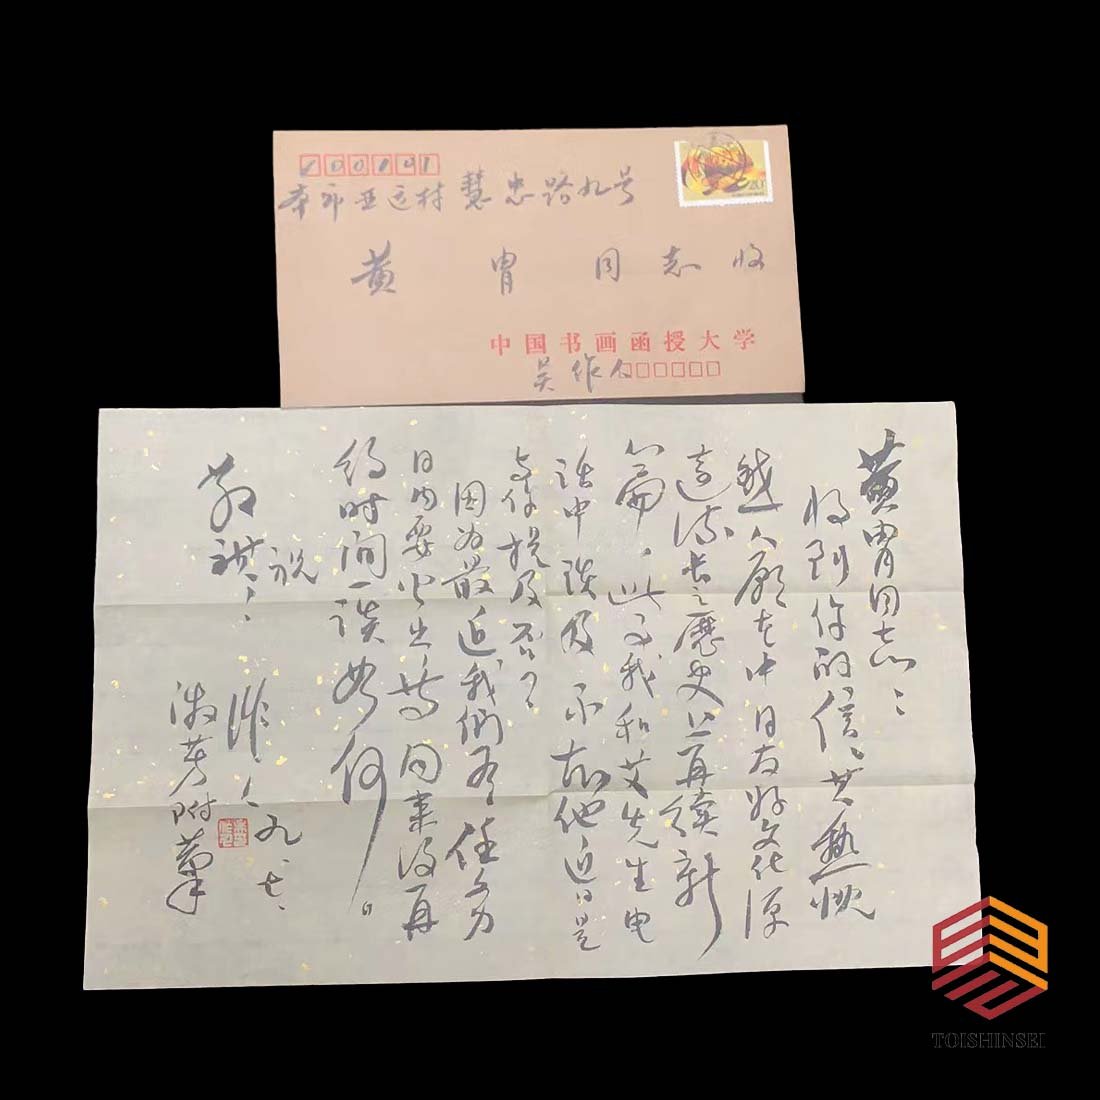 100101
本市亚运村慧忠路九号
黄胄同志收
20
中国书画函授大学
吴作人
黄胄同志：
得到你的信，甚热忱
人愿在中日友好文化源
远流长之历史上再续新
篇，此事我和艾先生电
话中谈及，不知他近日是
与你提及否？
因为最近我们有任务
日内要出岛，回来后再
约时间一谈如何。
祝
敬礼！
作人 九、七、
淑芳附笔
TOISHINSEI